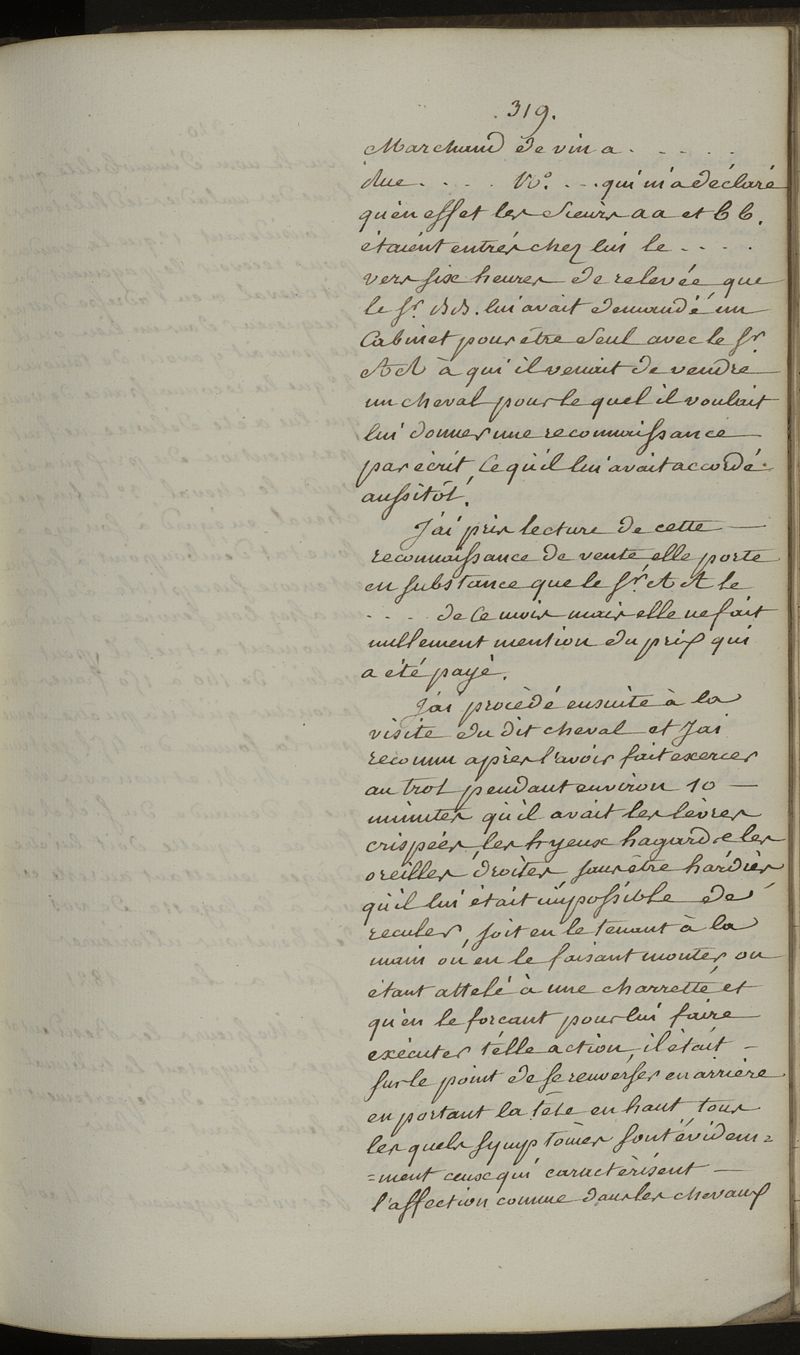 . 319.
Marchand de vin a . . . . .
Rue . . . . N.º . . . qui m'a déclaré
qu'en effet les Sieurs aa et bb.
étaient entrés chez lui le . . . .
vers six heures de relevée que
le Sr. BB. lui avait demandé un
Cabinet pour être seul avec le Sr
AA à qui il venait de vendre
un cheval pour le quel il voulait
lui donner une reconnaissance
par écrit, ce qu'il lui avait accordé
aussitôt.
J'ai pris lecture de cette —
reconnaissance de vente, elle porte
en substance que le Sr. A A le
. . . . de ce mois mais elle ne fait
nullement mention du prix qui
a été payé.
J'ai procèdé ensuite à la
visite du dit cheval et J'ai
reconnu après l'avoir fait exercer
au trot pendant environ 10 —
minutes qu'il avait les lèvres
crispées, les hyeux hagards les
oreilles droites, sans être hardies
qu'il lui était impossible de
reculer, soit en le tenant à la
main ou en le faisant monter ou
étant attelé à une charrette et
qu'en le forcant pour lui faire
exécuter telle action, il était —
sur le point de se renverser en arrière
en portant la tête en haut tous
les quels symptômes sont évidem=
=ment ceux qui caractèrisent —
l'affection comme dans les chevaux